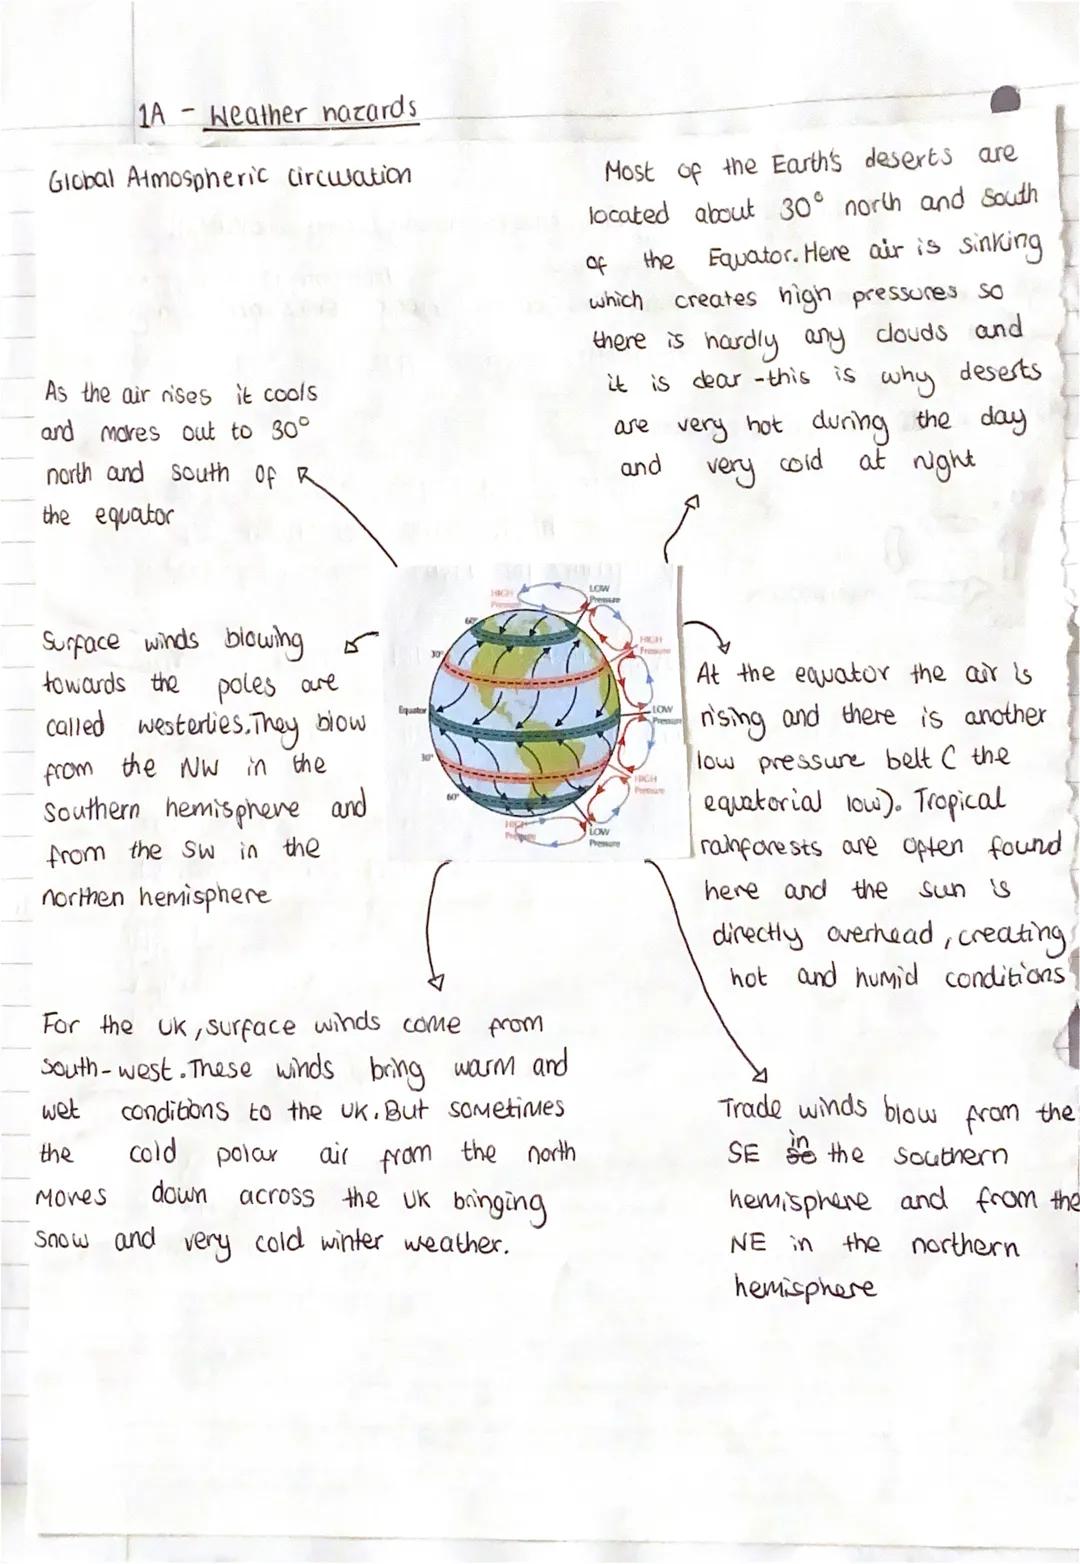 1A - Weather hazards
Global Atmospheric Circulation
Most of the Earth's deserts are
located about 30° north and South
of the Equator. Here air is sinking
which creates high pressures so
there is hardly any clouds and
it is clear - this is why deserts
are very hot during the day
and very cold at night
As the air rises it cools
and moves out to 30°
north and south of
the equator
Surface winds blowing
towards the poles are
called westerlies. They blow
from the NW in the
Southern hemisphere and
from the SW in the
northen hemisphere
HIGH
Pressure
LOW
Pressure
60°
HIGH
Pressure
30°
Equator
LOW
Pressure
30°
HIGH
Pressure
60°
HIGH
Pressure
LOW
Pressure
At the equator the air is
rising and there is another
low pressure belt ( the
equatorial low). Tropical
rainforests are often found
here and the sun is
directly overhead, creating
hot and humid conditions
For the UK, surface winds come from
South-west. These winds bring warm and
wet conditions to the UK. But sometimes
the cold polar air from the north
moves down across the UK bringing
snow and very cold winter weather.
Trade winds blow from the
SE in the southern
hemisphere and from the
NE in the northern
hemisphere